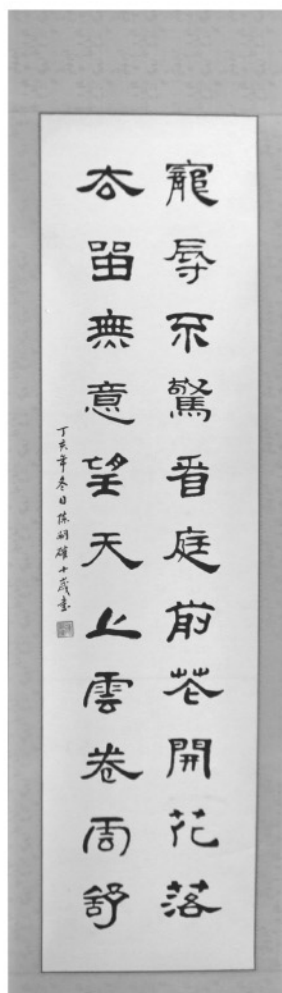 寵辱不驚看庭前花開花落
去留無意望天上雲卷雲舒
丁亥年冬日陈明雄十歲書